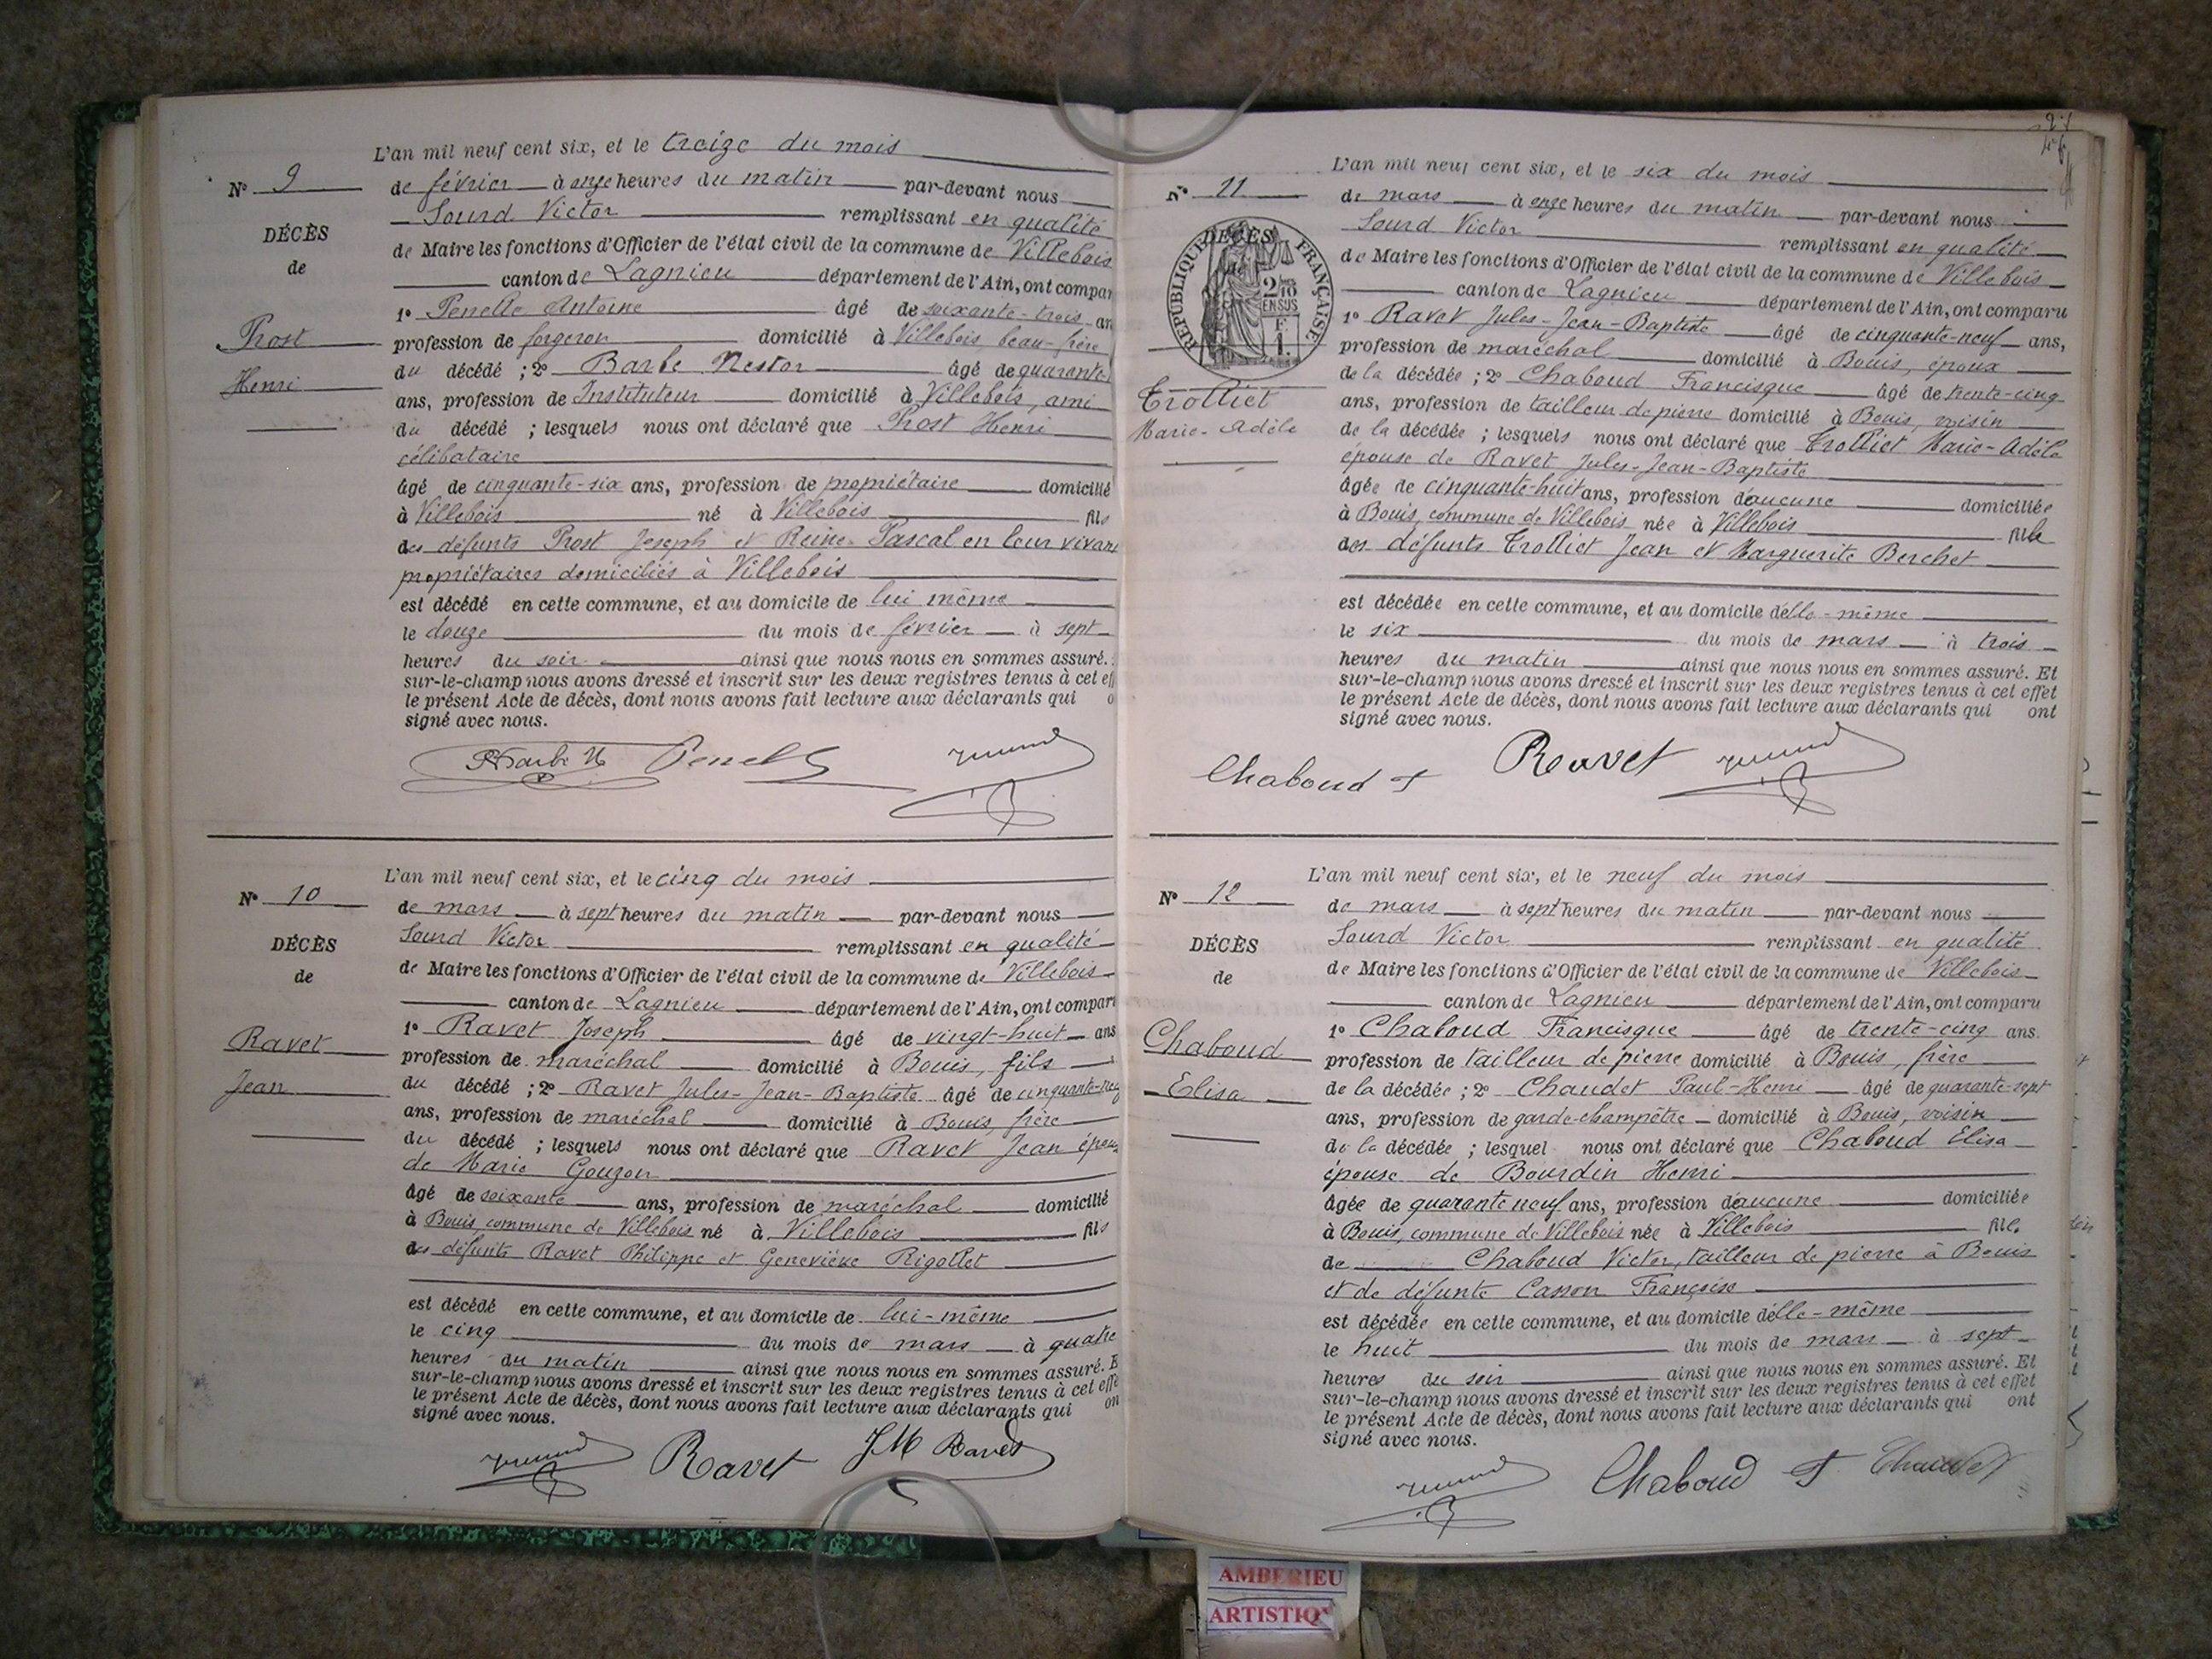 L'an mil neuf cent six, et le treize du mois
N° 9
de février à onze heures du matin par-devant nous
Sourd Victor remplissant en qualité
DÉCÈS
de Maire les fonctions d'Officier de l'état civil de la commune de Villebois
de
canton de Lagnieu département de l'Ain, ont compar
1° Penelle Antoine âgé de soixante-trois an
Prost
profession de forgeron domicilié à Villebois beau-frère
du décédé ; 2° Barbe Nestor âgé de quarante
Henri
ans, profession de Instituteur domicilié à Villebois, ami
du décédé ; lesquels nous ont déclaré que Prost Henri
célibataire
âgé de cinquante-six ans, profession de propriétaire domicilié
à Villebois né à Villebois fils
des défunts Prost Joseph et Reine Pascal en leur vivant
propriétaires domiciliés à Villebois
est décédé en cette commune, et au domicile de lui même
le douze du mois de février à sept
heures du soir ainsi que nous nous en sommes assuré.
sur-le-champ nous avons dressé et inscrit sur les deux registres tenus à cet eff
le présent Acte de décès, dont nous avons fait lecture aux déclarants qui o
signé avec nous.
Barbe N Penelle
L'an mil neuf cent six, et le cinq du mois
N° 10
de mars à sept heures du matin par-devant nous
Sourd Victor remplissant en qualité
DÉCÈS
de Maire les fonctions d'Officier de l'état civil de la commune de Villebois
de
canton de Lagnieu département de l'Ain, ont compar
1° Ravet Joseph âgé de vingt-huit ans
Ravet
profession de maréchal domicilié à Bouis, fils
Jean
du décédé ; 2° Ravet Jules-Jean-Baptiste âgé de cinquante-neuf
ans, profession de maréchal domicilié à Bouis, frère
du décédé ; lesquels nous ont déclaré que Ravet Jean époux
de Marie Goujon
âgé de soixante ans, profession de maréchal domicilié
à Bouis, commune de Villebois né à Villebois fils
des défunts Ravet Philippe et Geneviève Rigollet
est décédé en cette commune, et au domicile de lui-même
le cinq du mois de mars à quatre
heures du matin ainsi que nous nous en sommes assuré. E
sur-le-champ nous avons dressé et inscrit sur les deux registres tenus à cet effe
le présent Acte de décès, dont nous avons fait lecture aux déclarants qui on
signé avec nous.
Ravet JM Ravet
L'an mil neuf cent six, et le six du mois
N° 11
de mars à onze heures du matin par-devant nous
Sourd Victor remplissant en qualité
DÉCÈS
RÉPUBLIQUE FRANÇAISE
2/10
EN SUS
de Maire les fonctions d'Officier de l'état civil de la commune de Villebois
canton de Lagnieu département de l'Ain, ont comparu
1° Ravet Jules-Jean-Baptiste âgé de cinquante-neuf ans,
profession de maréchal domicilié à Bouis, époux
de la décédée ; 2° Chaboud Francisque âgé de trente-cinq
Trolliet
ans, profession de tailleur de pierre domicilié à Bouis, voisin
Marie-Adèle
de la décédée ; lesquels nous ont déclaré que Trolliet Marie-Adèle
épouse de Ravet Jules-Jean-Baptiste
âgée de cinquante-huit ans, profession d'aucune domiciliée
à Bouis, commune de Villebois née à Villebois fille
des défunts Trolliet Jean et Marguerite Berchet
est décédée en cette commune, et au domicile d'elle-même
le six du mois de mars à trois
heures du matin ainsi que nous nous en sommes assuré. Et
sur-le-champ nous avons dressé et inscrit sur les deux registres tenus à cet effet
le présent Acte de décès, dont nous avons fait lecture aux déclarants qui ont
signé avec nous.
Chaboud F Ravet
L'an mil neuf cent six, et le neuf du mois
N° 12
de mars à sept heures du matin par-devant nous
Sourd Victor remplissant en qualité
DÉCÈS
de Maire les fonctions d'Officier de l'état civil de la commune de Villebois
de
canton de Lagnieu département de l'Ain, ont comparu
1° Chaboud Francisque âgé de trente-cinq ans.
Chaboud
profession de tailleur de pierre domicilié à Bouis, frère
Elisa
de la décédée ; 2° Chaudet Paul-Henri âgé de quarante-sept
ans, profession de garde-champêtre domicilié à Bouis, voisin
de la décédée ; lesquel nous ont déclaré que Chaboud Elisa
épouse de Bourdin Henri
âgée de quarante neuf ans, profession d'aucune domiciliée
à Bouis, commune de Villebois née à Villebois fille
de Chaboud Victor, tailleur de pierre à Bouis
et de défunte Casson Françoise
est décédée en cette commune, et au domicile d'elle-même
le huit du mois de mars à sept
heures du soir ainsi que nous nous en sommes assuré. Et
sur-le-champ nous avons dressé et inscrit sur les deux registres tenus à cet effet
le présent Acte de décès, dont nous avons fait lecture aux déclarants qui ont
signé avec nous.
Chaboud F Chaudet
AMBERIEU
ARTISTIQ